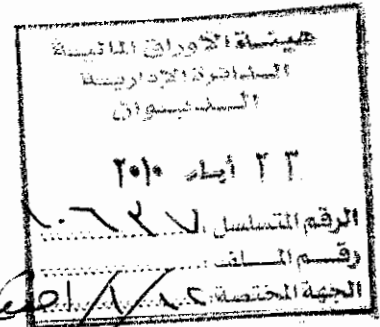 هيئة الأوراق المالية
الدائرة الإدارية
الديوان
٢٣ أيار ٢٠١٠
الرقم المتسلسل
رقم الملف
الجهة المختصة